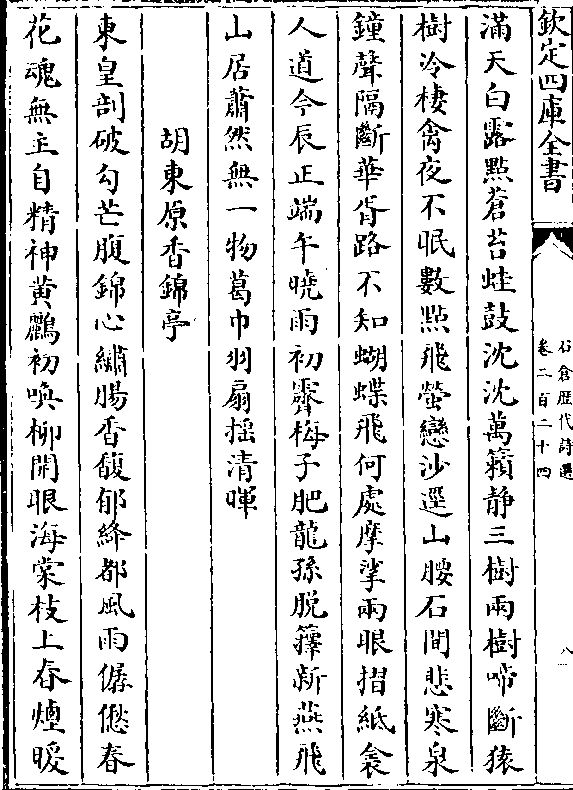 欽定四庫全書
石倉歴代詩選
卷二百二十四
八
滿天白露㸃蒼苔蛙鼓沈沈萬籟静三樹兩樹啼斷猿
樹冷棲禽夜不眠數㸃飛螢戀沙逕山腰石間悲寒泉
鐘聲隔斷華胥路不知蝴蝶飛何處摩挲兩眼摺紙衾
人道今辰正端午曉雨初霽梅子肥龍孫脱籜新燕飛
山居蕭然無一物葛巾羽扇揺清暉
胡東原香錦亭
東皇剖破勾芒腹錦心繡腸香馥郁絳都風雨僝僽春
花魂無主自精神黄鸝初喚柳開眼海棠枝上春煙暖